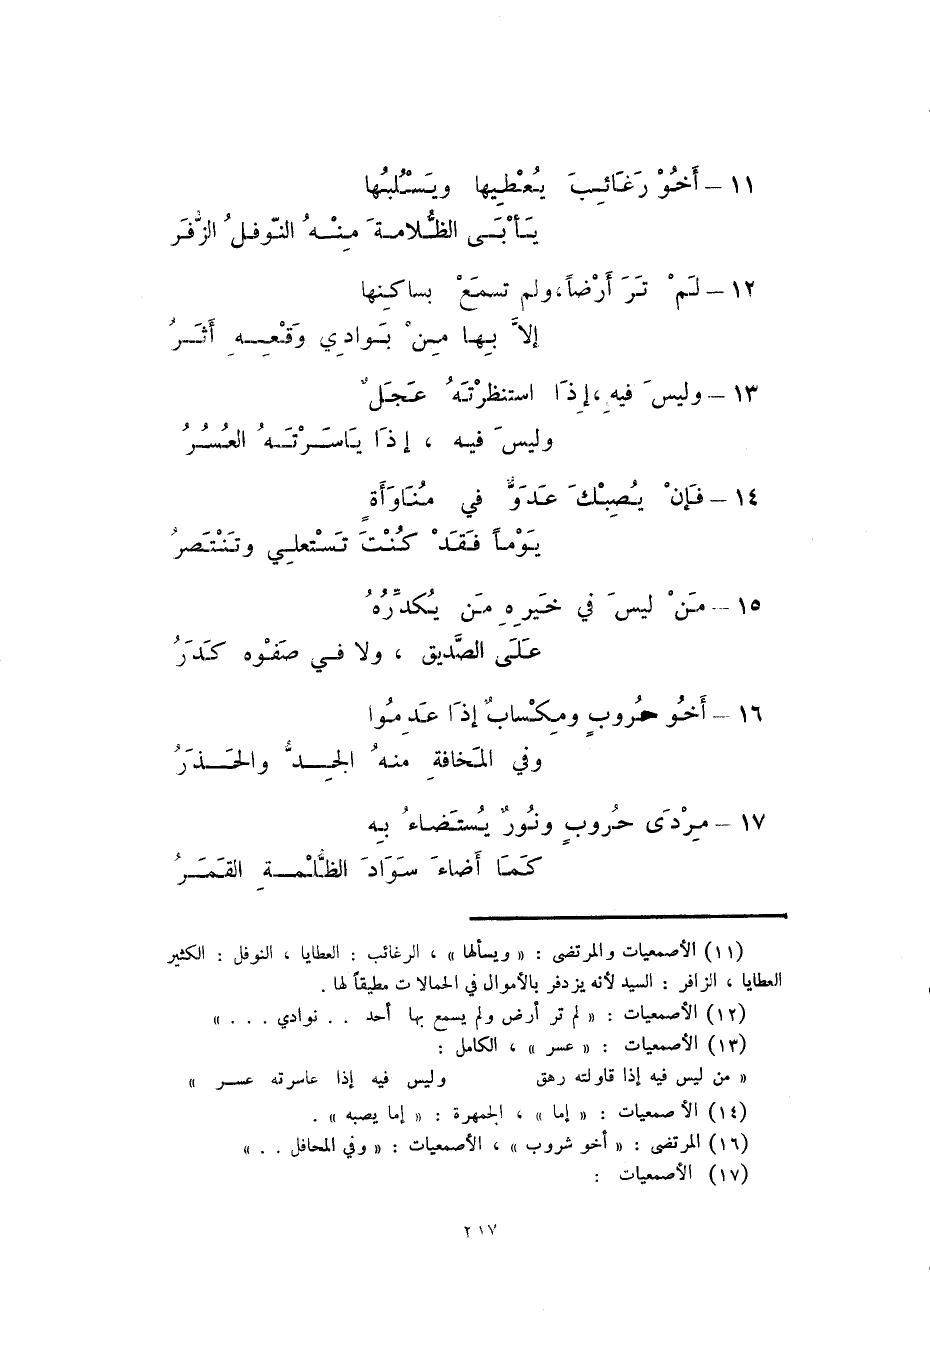 ١١ – أَخُوْ رَغَائِبَ يُعْطِيها ويَسْلُبُها
يَأْبَى الظُّلامةَ مِنْهُ النّوفلُ الزُّفَر
١٢ – لَمْ تَرَ أَرْضاً، ولم تسمَعْ بساكِنِها
إلاَّ بِها مِنْ بَوادِي وَقْعِهِ أَثَرُ
١٣ – وليسَ فيهِ، إذَا استنظرْتَهُ عَجَلٌ
وليسَ فيه ، إذَا يَاسَرْتَهُ العُسُرُ
١٤ – فَإنْ يُصِبْكَ عَدَوٌّ في مُنَاوَأَةٍ
يَوْماً فَقَدْ كُنْتَ تَسْتَعلِي وتَنْتَصرُ
١٥ – مَنْ ليسَ في خَيرِهِ مَن يُكدِّرُهُ
عَلَى الصَّديق ، ولا في صَفْوه كَدَرُ
١٦ – أَخُو حُروبٍ ومِكْسابٌ إذَا عَدِمُوا
وفي المَخافةِ منهُ الجِدُّ والحَذَرُ
١٧ – مِرْدَى حُروبٍ ونُورٌ يُستَضاءُ بِهِ
كَمَا أَضاءَ سَوَادَ الظُّلْمةِ القَمَرُ
(١١) الأصمعيات والمرتضى : « ويسألها » ، الرغائب : العطايا ، النوفل : الكثير
العطايا ، الزافر : السيد لأنه يزدفر بالأموال في الحمالات مطيقاً لها .
(١٢) الأصمعيات : « لم تر أرض ولم يسمع بها أحد . . نوادي . . . »
(١٣) الأصمعيات : « عسر » ، الكامل :
« من ليس فيه إذا قاولته رهق وليس فيه إذا عاسرته عسر »
(١٤) الأصمعيات : « إما » ، الجمهرة : « إما يصبه » .
(١٦) المرتضى : « أخو شروب » ، الأصمعيات : « وفي المحافل . . »
(١٧) الأصمعيات :
٢١٧